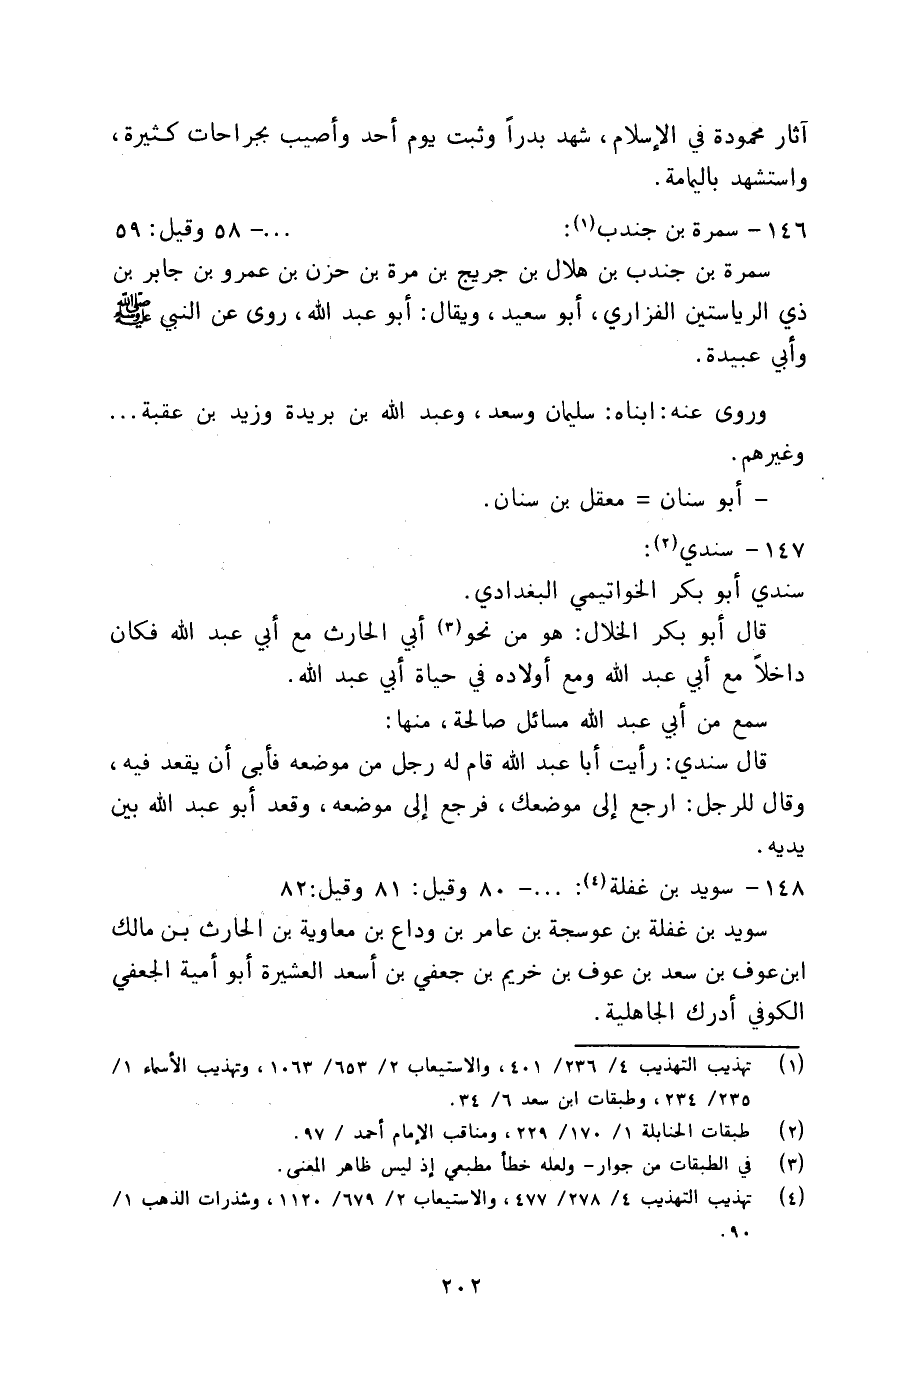 آثار محمودة في الإسلام، شهد بدراً وثبت يوم أحد وأصيب بجراحات كثيرة،
واستشهد باليمامة.
١٤٦ - سمرة بن جندب(١): ...- ٥٨ وقيل: ٥٩
سمرة بن جندب بن هلال بن جريج بن مرة بن حزن بن عمرو بن جابر بن
ذي الرياستين الفزاري، أبو سعيد، ويقال: أبو عبد الله، روى عن النبي ﷺ
وأبي عبيدة.
وروى عنه: ابناه: سليمان وسعد، وعبد الله بن بريدة وزيد بن عقبة...
وغيرهم.
- أبو سنان = معقل بن سنان.
١٤٧ - سندي(٢):
سندي أبو بكر الخواتيمي البغدادي.
قال أبو بكر الخلال: هو من نحو(٣) أبي الحارث مع أبي عبد الله فكان
داخلاً مع أبي عبد الله ومع أولاده في حياة أبي عبد الله.
سمع من أبي عبد الله مسائل صالحة، منها:
قال سندي: رأيت أبا عبد الله قام له رجل من موضعه فأبى أن يقعد فيه،
وقال للرجل: ارجع إلى موضعك، فرجع إلى موضعه، وقعد أبو عبد الله بين
يديه.
١٤٨ - سويد بن غفلة(٤): ...- ٨٠ وقيل: ٨١ وقيل:٨٢
سويد بن غفلة بن عوسجة بن عامر بن وداع بن معاوية بن الحارث بن مالك
ابن عوف بن سعد بن عوف بن خريم بن جعفي بن أسعد العشيرة أبو أمية الجعفي
الكوفي أدرك الجاهلية.
(١) تهذيب التهذيب ٤/ ٢٣٦/ ٤٠١، والاستيعاب ٢/ ٦٥٣/ ١٠٦٣، وتهذيب الأسماء ١/
٢٣٥/ ٢٣٤، وطبقات ابن سعد ٦/ ٣٤.
(٢) طبقات الحنابلة ١/ ١٧٠/ ٢٢٩، ومناقب الإمام أحمد / ٩٧.
(٣) في الطبقات من جوار- ولعله خطأ مطبعي إذ ليس ظاهر المعنى.
(٤) تهذيب التهذيب ٤/ ٢٧٨/ ٤٧٧، والاستيعاب ٢/ ٦٧٩/ ١١٢٠، وشذرات الذهب ١/
٩٠.
٢٠٢